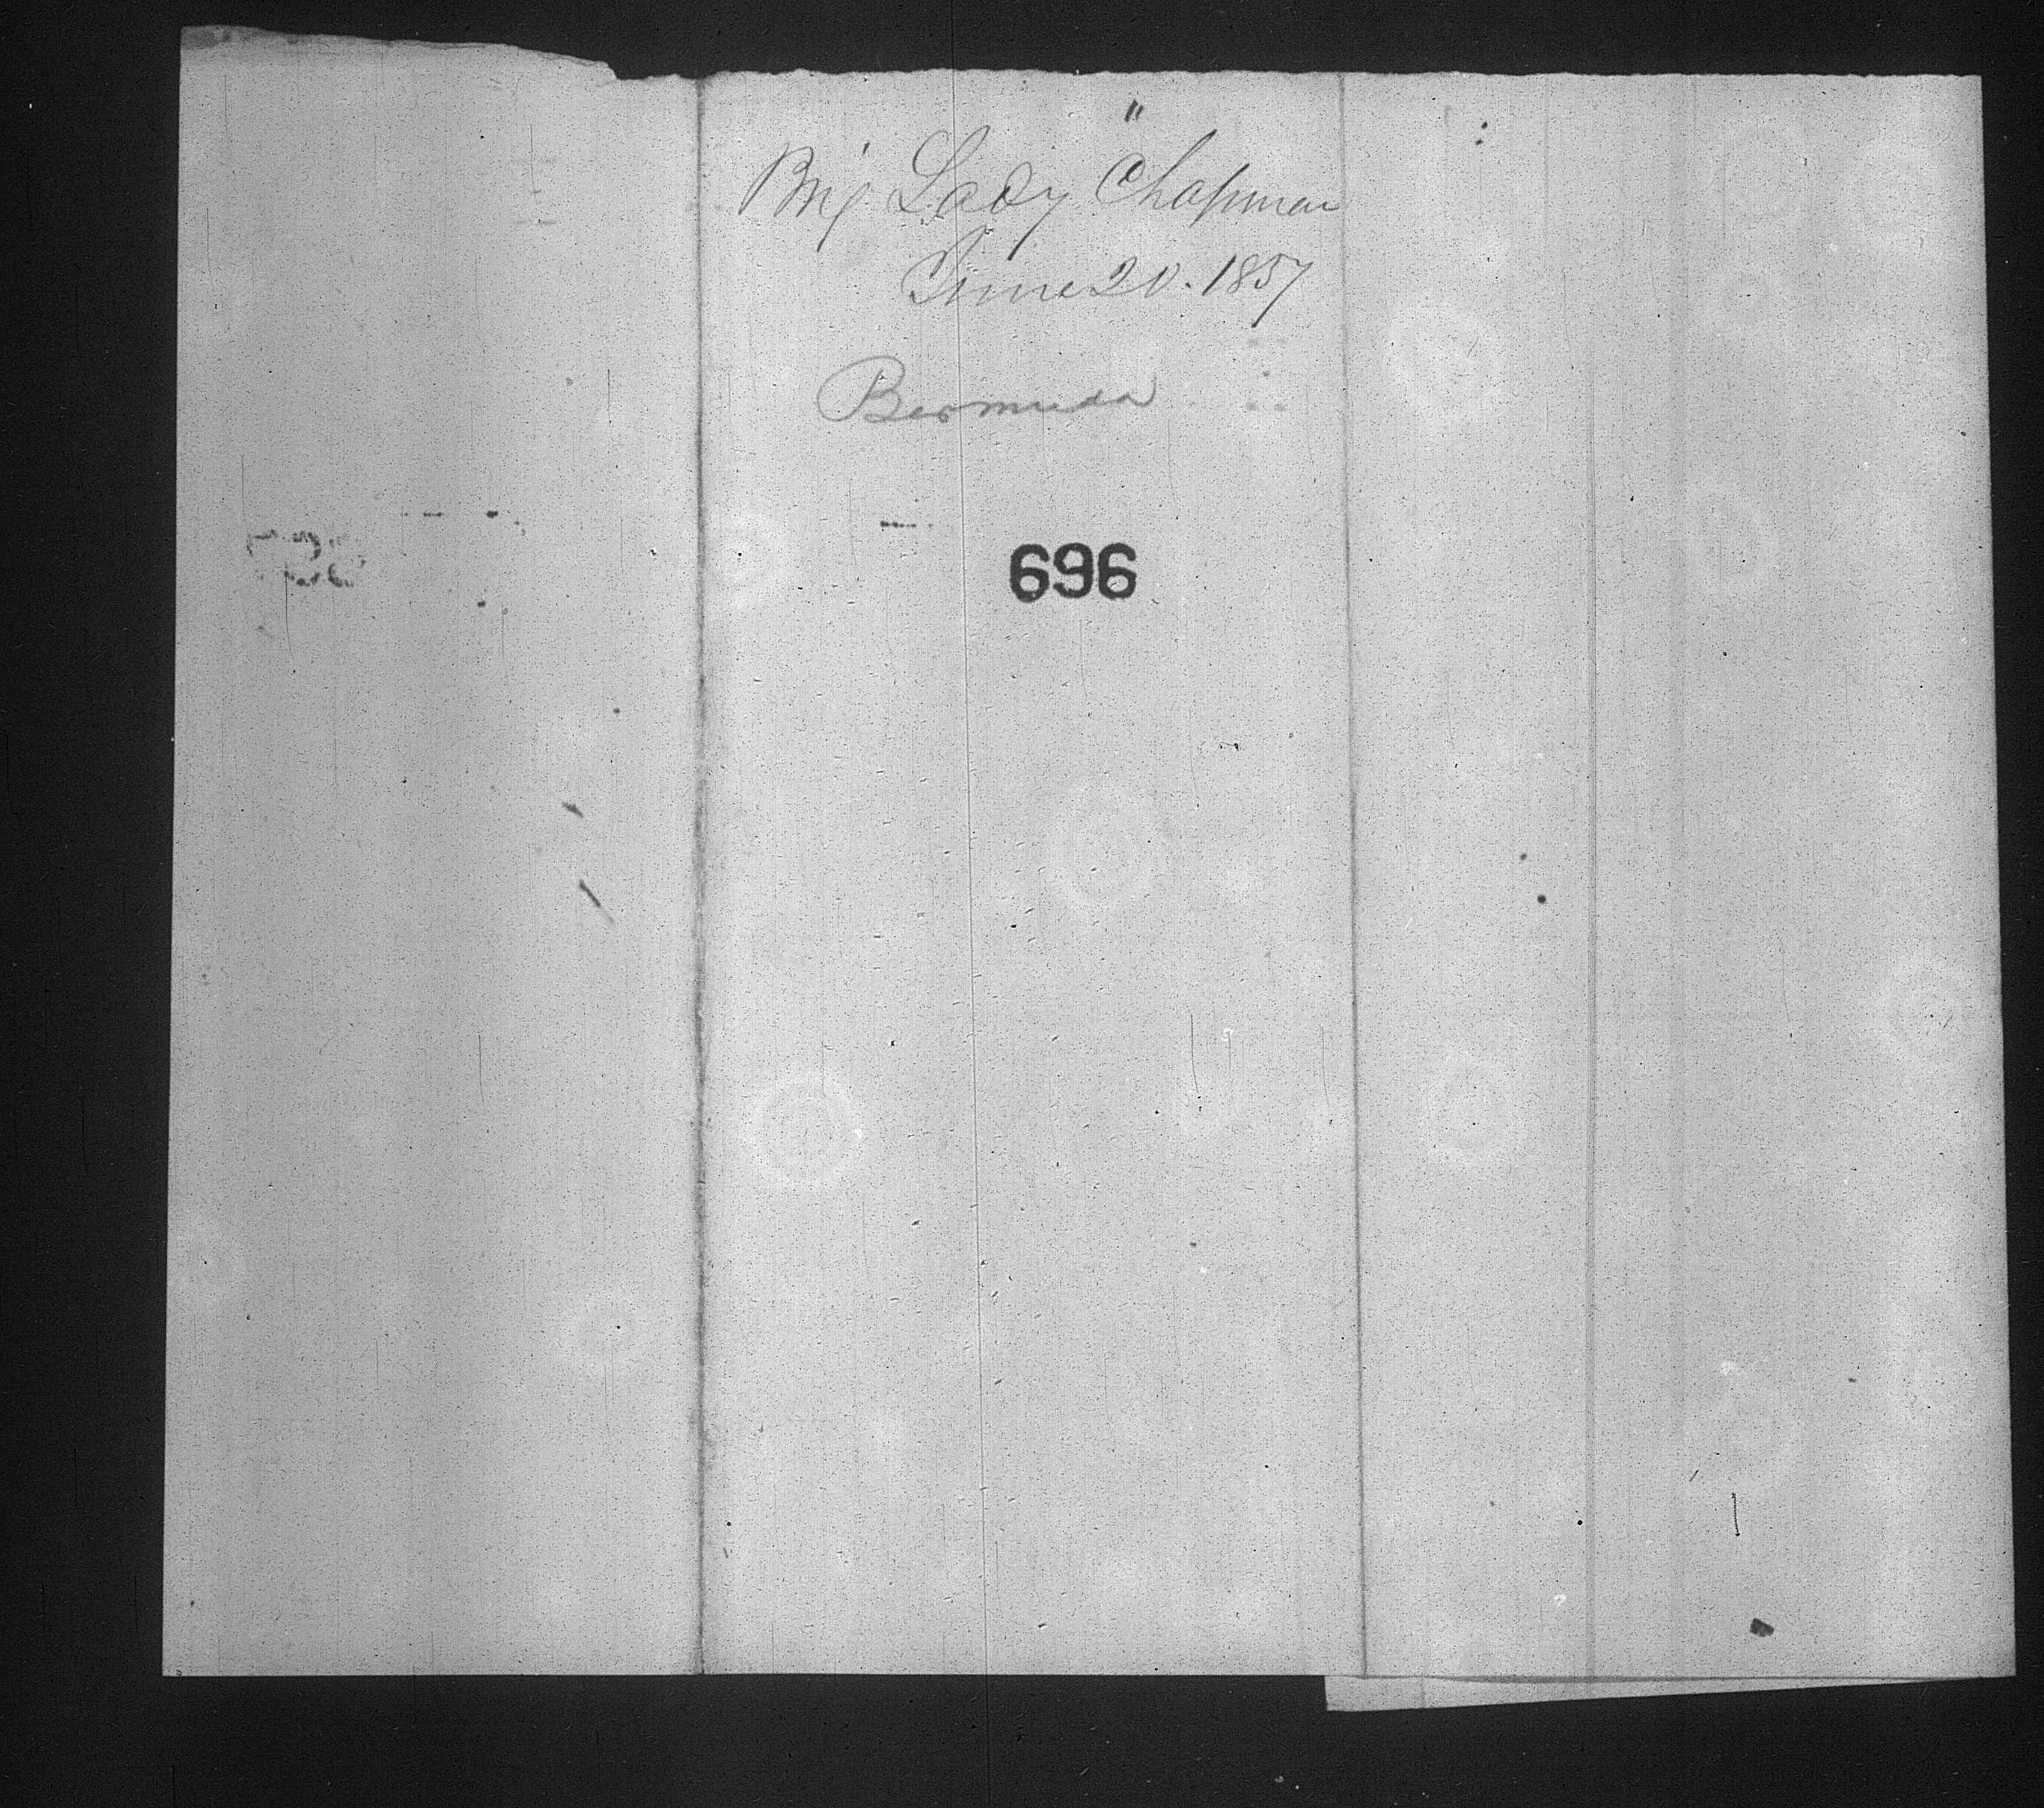 "
Brig Lady Chapman
June 20. 1857
Bermuda
696